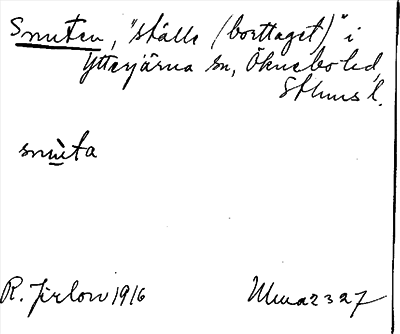 Smuten, "ställe (borttaget)" i
Ytterjärna sn, Öknebo hd,
Sthms l.
smùta
R. Jirlow 1916 Muua2327